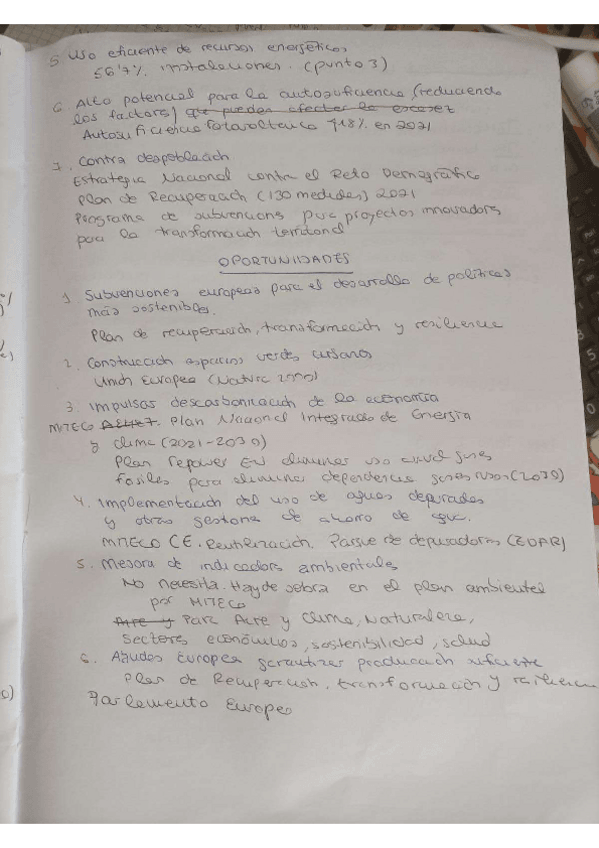 5. Uso eficiente de recursos energéticos
56'7% instalaciones. (punto 3)
6. Alto potencial para la autosuficiencia (reduciendo
los factores) que pueden afectar la escasez
Autosuficiencia fotovoltaica 718% en 2021
7. Contra despoblación
Estrategia Nacional contra el Reto Demográfico
Plan de Recuperación (130 medidas) 2021
Programa de subvenciones para proyectos innovadores
para la transformación territorial
OPORTUNIDADES
1. Subvenciones europeas para el desarrollo de políticas
más sostenibles.
Plan de recuperación, transformación y resiliencia
2. Construcción espacios verdes urbanos
Unión Europea (Natura 2000)
3. Impulsas descarbonización de la economía
MITECO Plan Nacional Integrado de Energía
y clima (2021-2030)
Plan Repower EU eliminar uso
fósiles para eliminar dependencia gases rusos (2030)
4. Implementación del uso de aguas depuradas
y otras gestiones de ahorro de agua.
MITECO CE. Reutilización. Parque de depuradoras (EDAR)
5. Mejora de indicadores ambientales
No necesita. Hay de sobra en el plan ambiental
por MITECO
Aire y Para Aire y Clima, Naturaleza,
sectores económicos, sostenibilidad, salud
6. Ayudas Europea garantizar producción suficiente
Plan de Recuperación, transformación y resiliencia
Parlamento Europeo